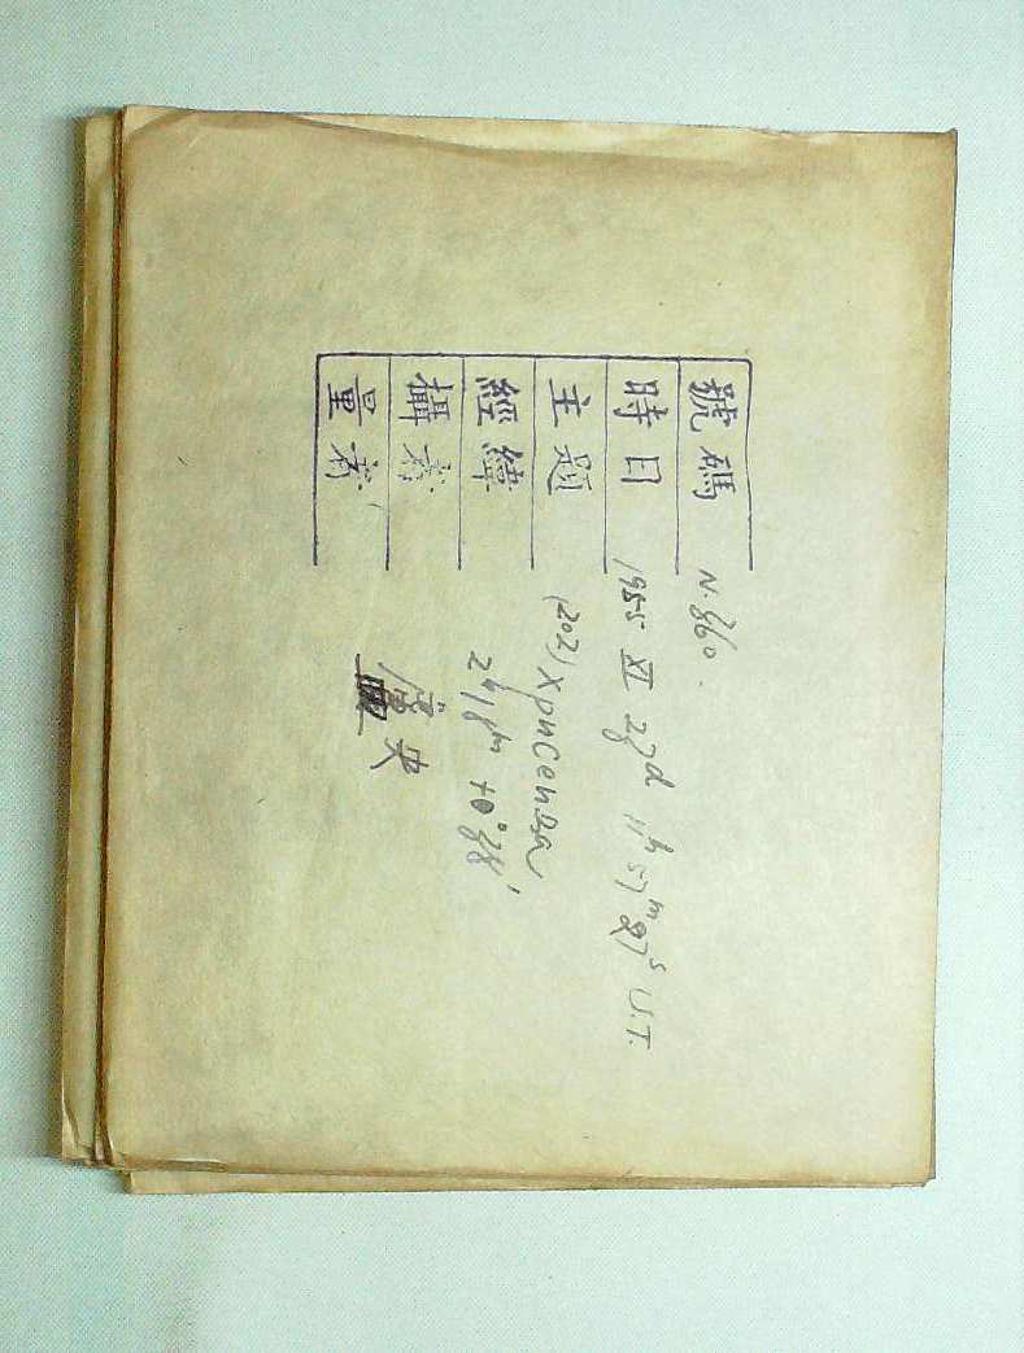 號碼 N. 860.
時日 1955 XI 28d 11h 57m 27s U.T.
主題 (202) Хрисеида
經緯 2h18m +0°38'
攝者
量者